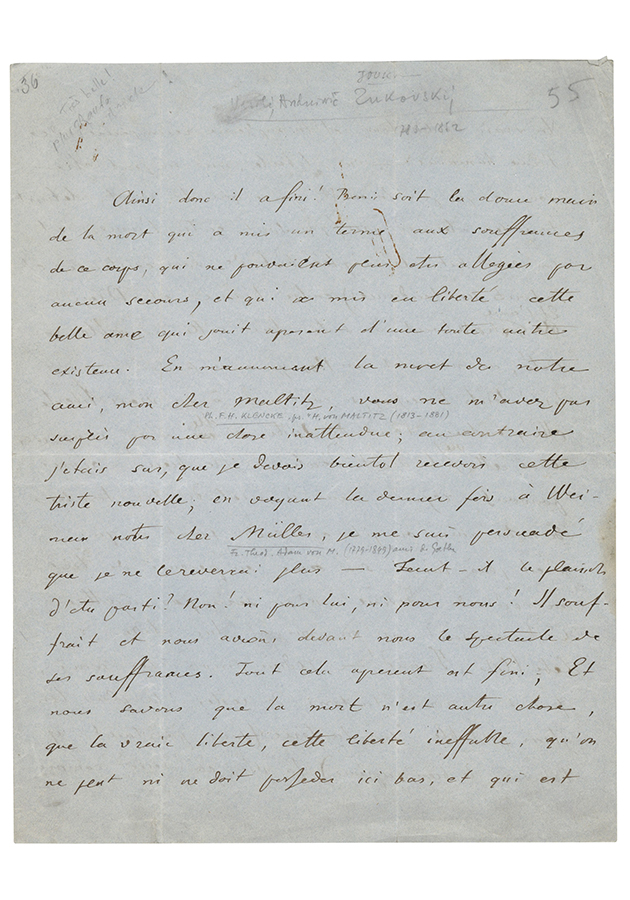 36
Très belle!
55
Jouk
Andreevič Žukovskij
1783-1852
Ainsi donc il a fini! Beni soit la douce main
de la mort qui a mis un terme aux souffrances
de ce corps, qui ne pouvaient plus etre allegées par
aucun secours, et qui a mis en liberté cette
belle ame qui jouit apresent d'une toute autre
existence. En m'annoncant la mort de notre
ami, mon cher Maltitz, vous ne m'avez pas
F.H. KLENCKE, von MALTITZ (1813-1881)
surpris par une chose inattendue; au contraire
j'etais sur, que je devais bientot recevoir cette
triste nouvelle; en voyant la derniere fois à Wei-
mar notre cher Müller, je me suis persuadé
Fr. Theod. Adam von M. (1779-1849)
que je ne le reverrai plus — Faut-il le plaindre
d'etre parti? Non! ni pour lui, ni pour nous! Il souf-
frait et nous avions devant nous le spectacle de
ses souffrances. Tout cela apresent est fini, Et
nous savons que la mort n'est autre chose,
que la vraie liberté, cette liberté ineffable, qu'on
ne peut ni ne doit posseder ici bas, et qui est